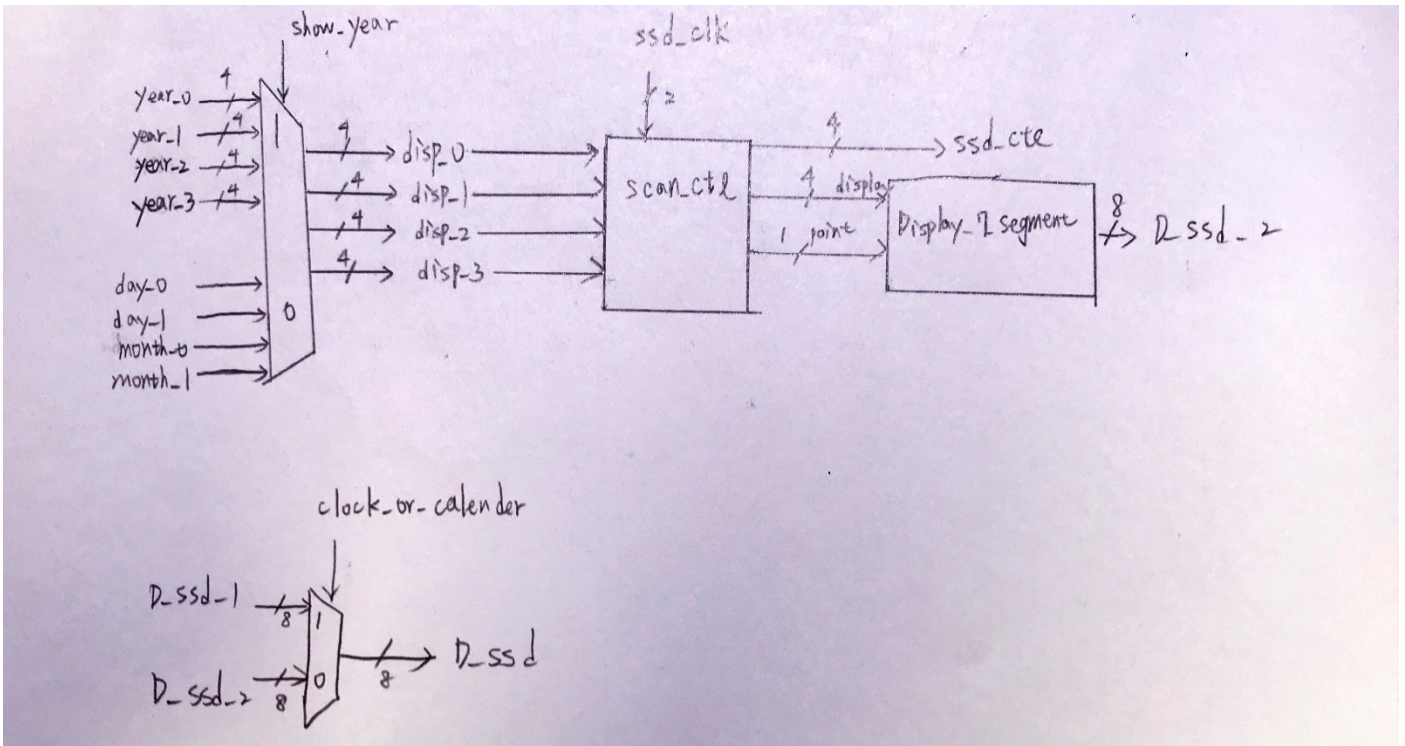 show_year
ssd_clk
year_0 4
year_1 4
year_2 4
year_3 4
1
0
day_0
day_1
month_0
month_1
4 disp_0
4 disp_1
4 disp_2
4 disp_3
2
scan_ctl
4 ssd_ctl
4 display
1 point
Display_7 segment
8 D_ssd_2
clock_or_calender
D_ssd_1 8
D_ssd_2 8
1
0
8 D_ssd